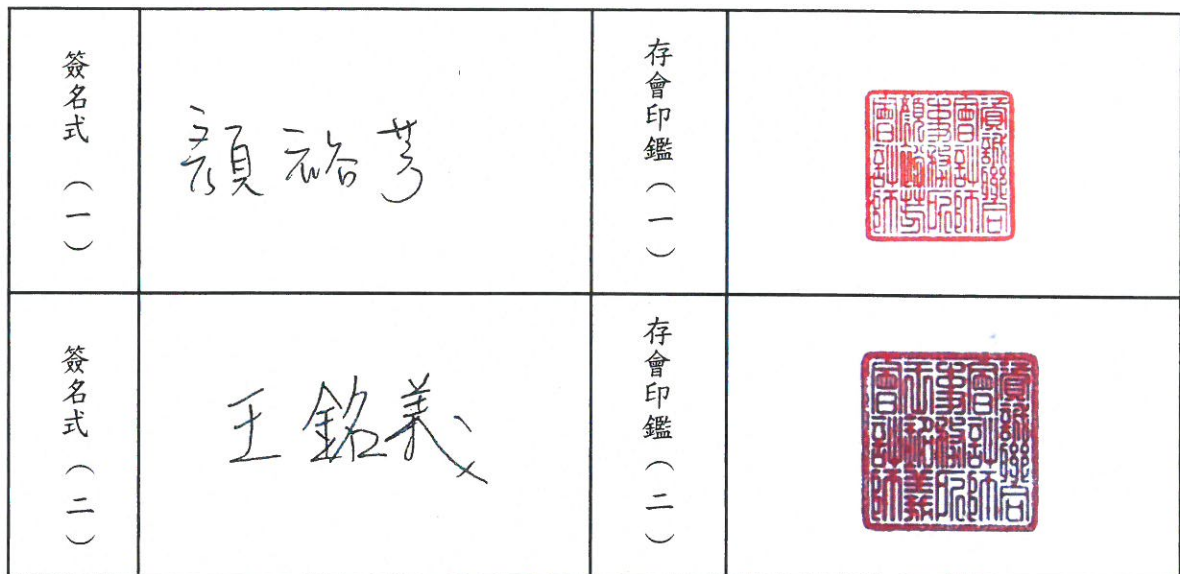 簽名式（一）
顏裕芳
存會印鑑（一）
資誠聯合
會計師
事務所
顏裕芳
會計師
簽名式（二）
王銘義
存會印鑑（二）
資誠聯合
會計師
事務所
王銘義
會計師